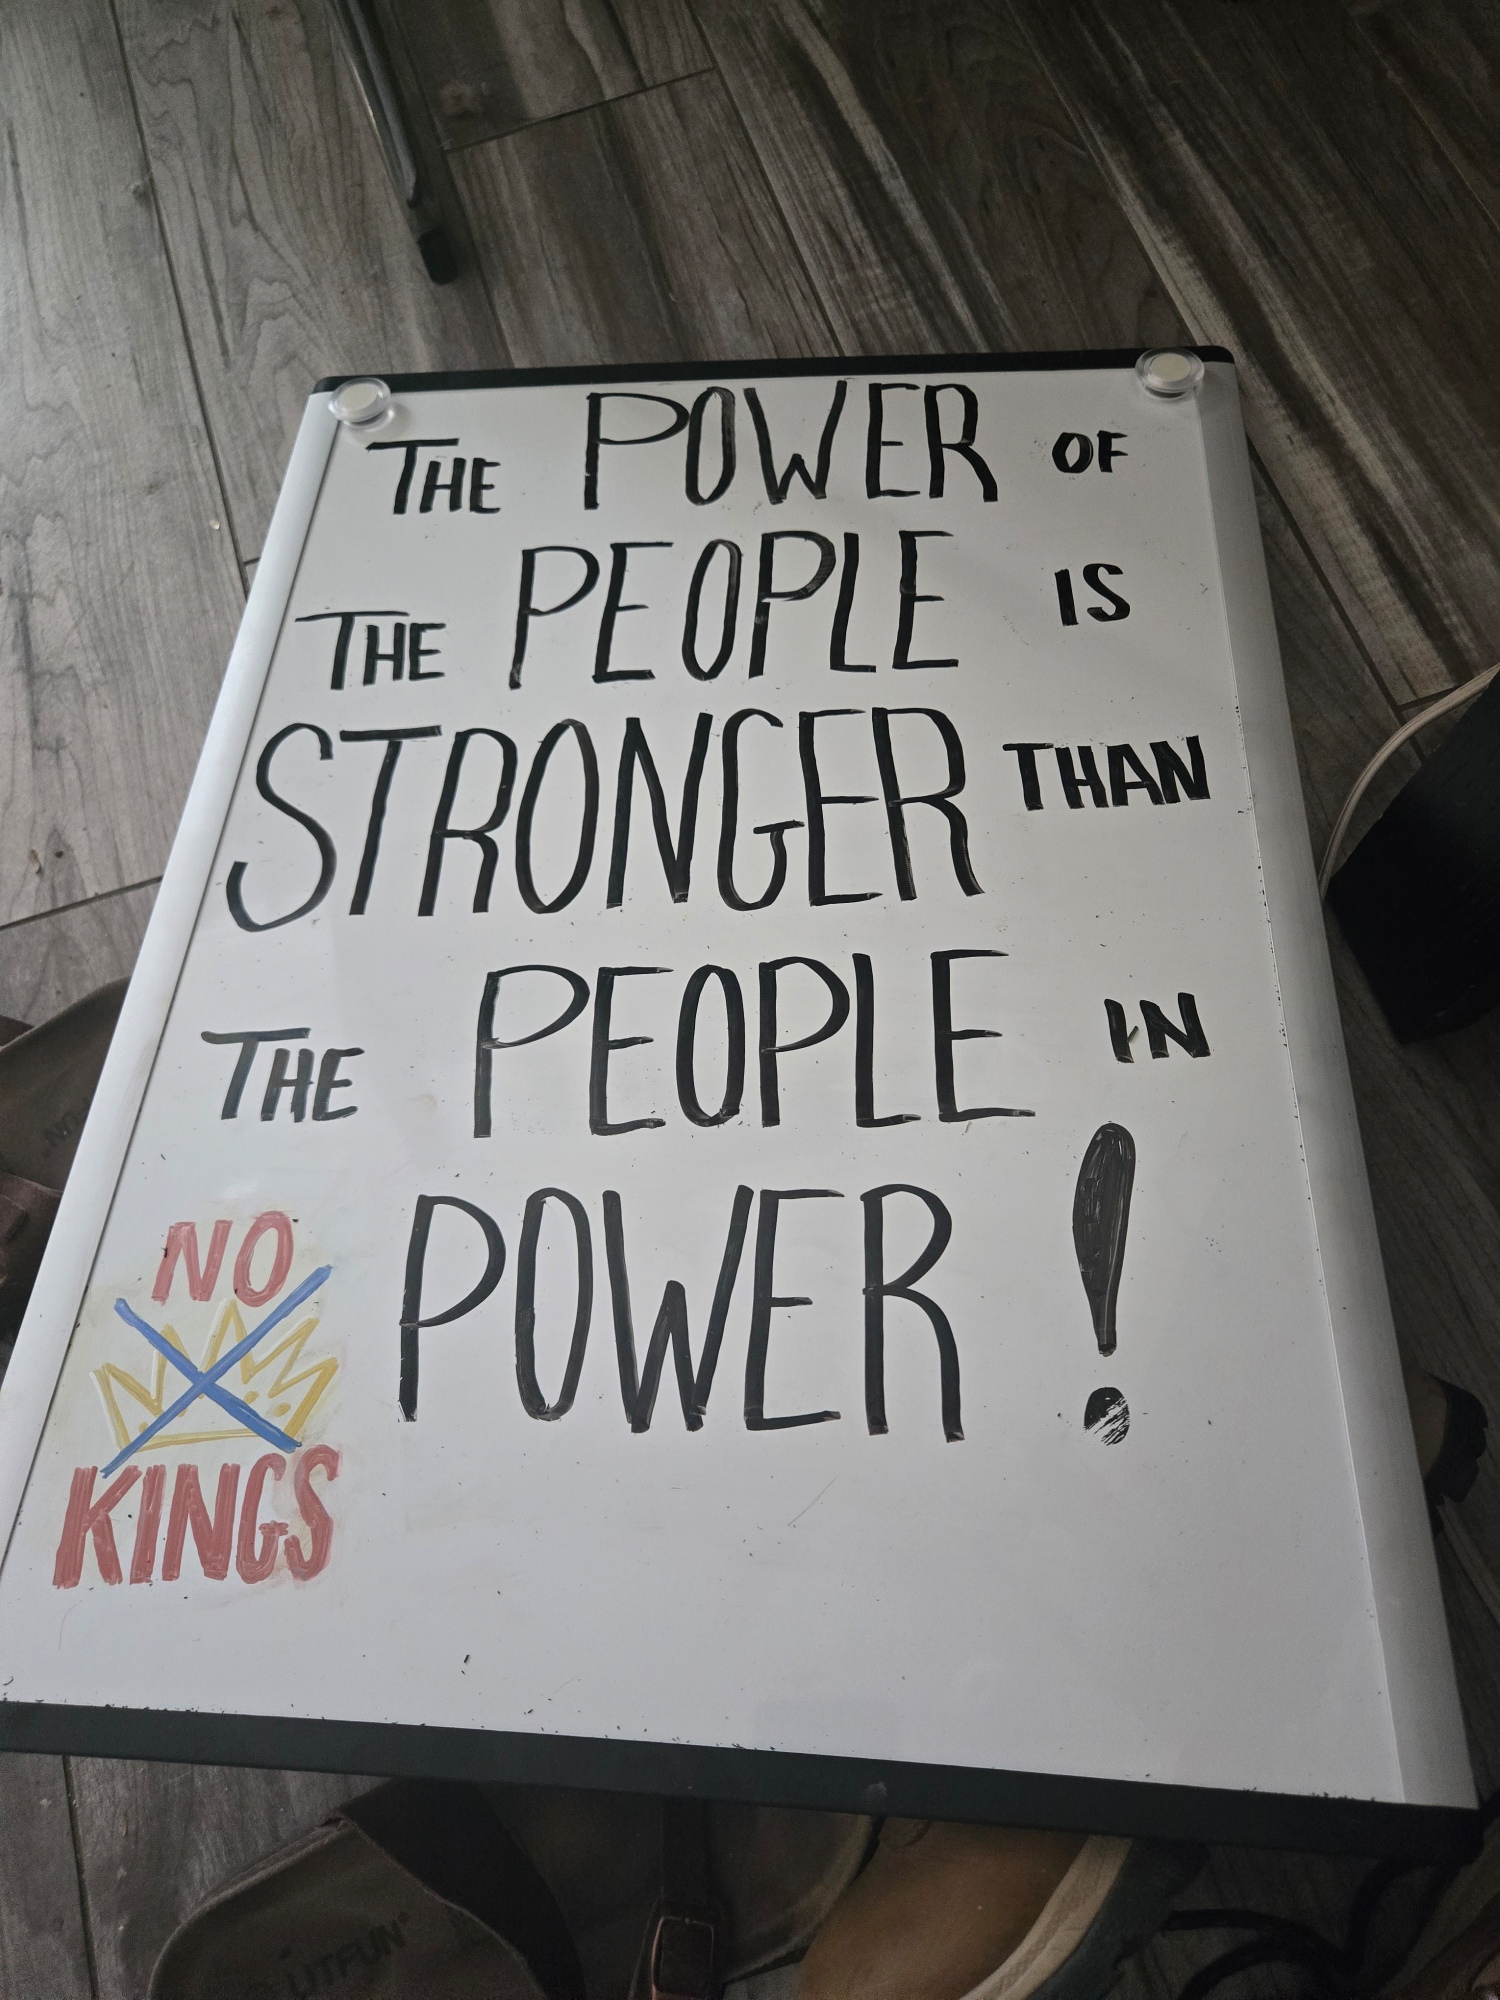 THE POWER OF
THE PEOPLE IS
STRONGER THAN
THE PEOPLE IN
POWER!
NO
KINGS